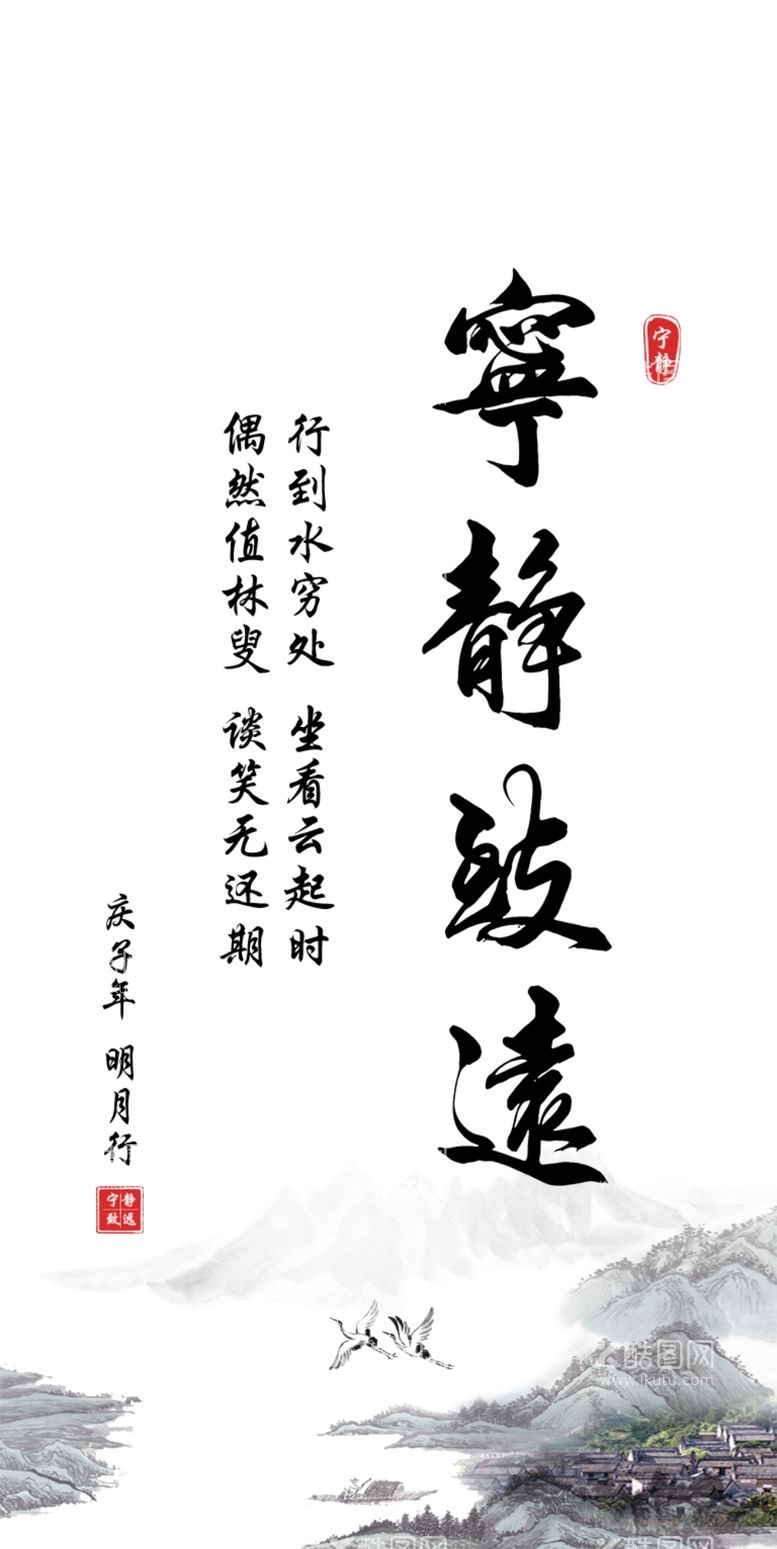 宁静
寧静致遠
行到水穷处 坐看云起时
偶然值林叟 谈笑无还期
庆子年 明月行
宁静
致远
酷图网
www.ikutu.com